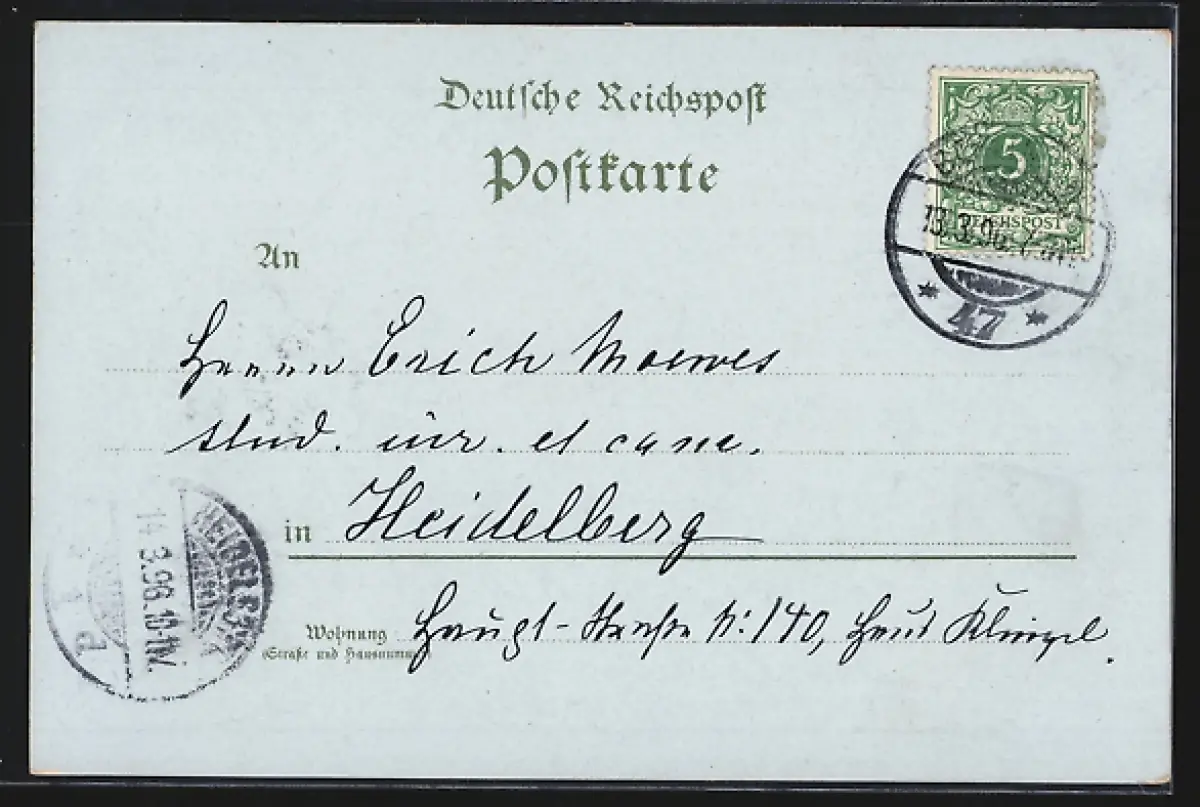 Deutsche Reichspost
Postkarte
5
REICHSPOST
13.3.96. 7
* 47 *
An
Herrn Erich Moewes
stud. iur. et cam.
in Heidelberg
HEIDELBERG
14.3.96.10-11V.
Wohnung
(Straße und Hausnummer)
Haupt-Straße N: 140, Haus Klingel.